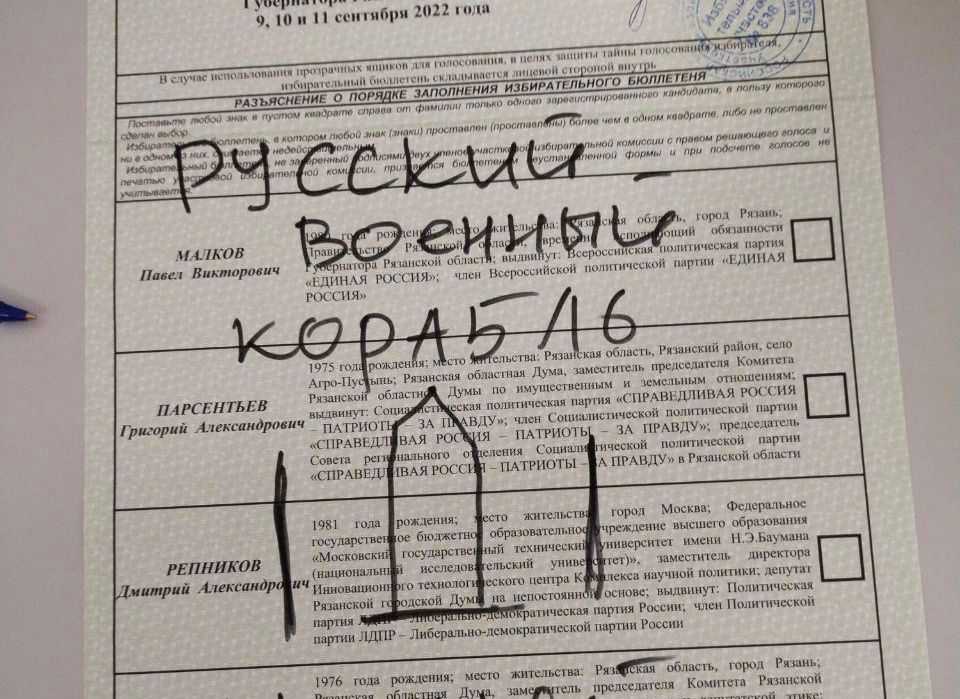 Губернатора
9, 10 и 11 сентября 2022 года
№ 838
В случае использования прозрачных ящиков для голосования, в целях защиты тайны голосования избирателя,
избирательный бюллетень складывается лицевой стороной внутрь
РАЗЪЯСНЕНИЕ О ПОРЯДКЕ ЗАПОЛНЕНИЯ ИЗБИРАТЕЛЬНОГО БЮЛЛЕТЕНЯ
Поставьте любой знак в пустом квадрате справа от фамилии только одного зарегистрированного кандидата, в пользу которого
сделан выбор.
Избирательный бюллетень, в котором любой знак (знаки) проставлен (проставлены) более чем в одном квадрате, либо не проставлен
ни в одном из них, считается недействительным.
Избирательный бюллетень, не заверенный подписями двух членов участковой избирательной комиссии с правом решающего голоса и
печатью участковой избирательной комиссии, признается бюллетенем неустановленной формы и при подсчете голосов не
учитывается.
РУССКИЙ
ВОЕННЫЙ
КОРАБЛЬ
МАЛКОВ
Павел Викторович
1980 года рождения; место жительства: Рязанская область, город Рязань;
Правительство Рязанской области, временно исполняющий обязанности
Губернатора Рязанской области; выдвинут: Всероссийская политическая партия
«ЕДИНАЯ РОССИЯ»; член Всероссийской политической партии «ЕДИНАЯ
РОССИЯ»
ПАРСЕНТЬЕВ
Григорий Александрович
1975 года рождения; место жительства: Рязанская область, Рязанский район, село
Агро-Пустынь; Рязанская областная Дума, заместитель председателя Комитета
Рязанской областной Думы по имущественным и земельным отношениям;
выдвинут: Социалистическая политическая партия «СПРАВЕДЛИВАЯ РОССИЯ
– ПАТРИОТЫ – ЗА ПРАВДУ»; член Социалистической политической партии
«СПРАВЕДЛИВАЯ РОССИЯ – ПАТРИОТЫ – ЗА ПРАВДУ»; председатель
Совета регионального отделения Социалистической политической партии
«СПРАВЕДЛИВАЯ РОССИЯ – ПАТРИОТЫ – ЗА ПРАВДУ» в Рязанской области
РЕПНИКОВ
Дмитрий Александрович
1981 года рождения; место жительства: город Москва; Федеральное
государственное бюджетное образовательное учреждение высшего образования
«Московский государственный технический университет имени Н.Э.Баумана
(национальный исследовательский университет)», заместитель директора
Инновационного технологического центра Комплекса научной политики; депутат
Рязанской городской Думы на непостоянной основе; выдвинут: Политическая
партия ЛДПР – Либерально-демократическая партия России; член Политической
партии ЛДПР – Либерально-демократической партии России
1976 года рождения; место жительства: Рязанская область, город Рязань;
Рязанская областная Дума, заместитель председателя Комитета Рязанской